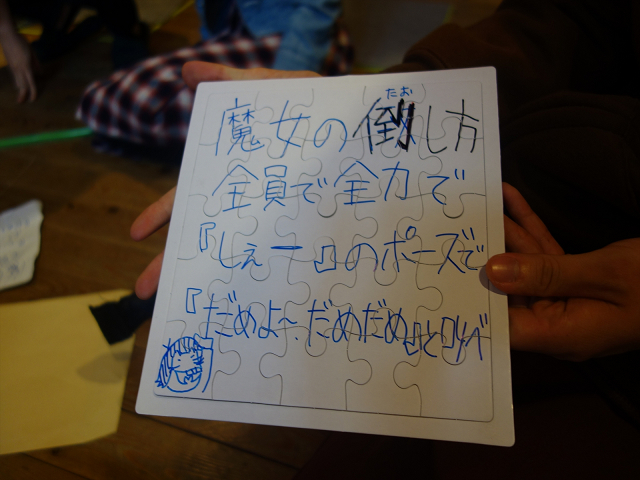 魔女の倒し方
たお
全員で全力で
『しぇー』のポーズで
『だめよ〜、だめだめ』と叫べ